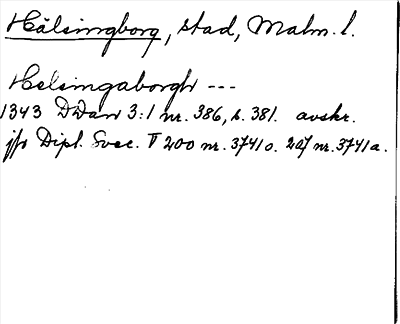 Hälsingborg, stad, Malm. l.
Helsingaborgh ---
1343 DDan 3:1 nr. 386, s. 381. avskr.
jfr Dipl. Svec. V 200 nr. 3741 o. 207 nr. 3741a.